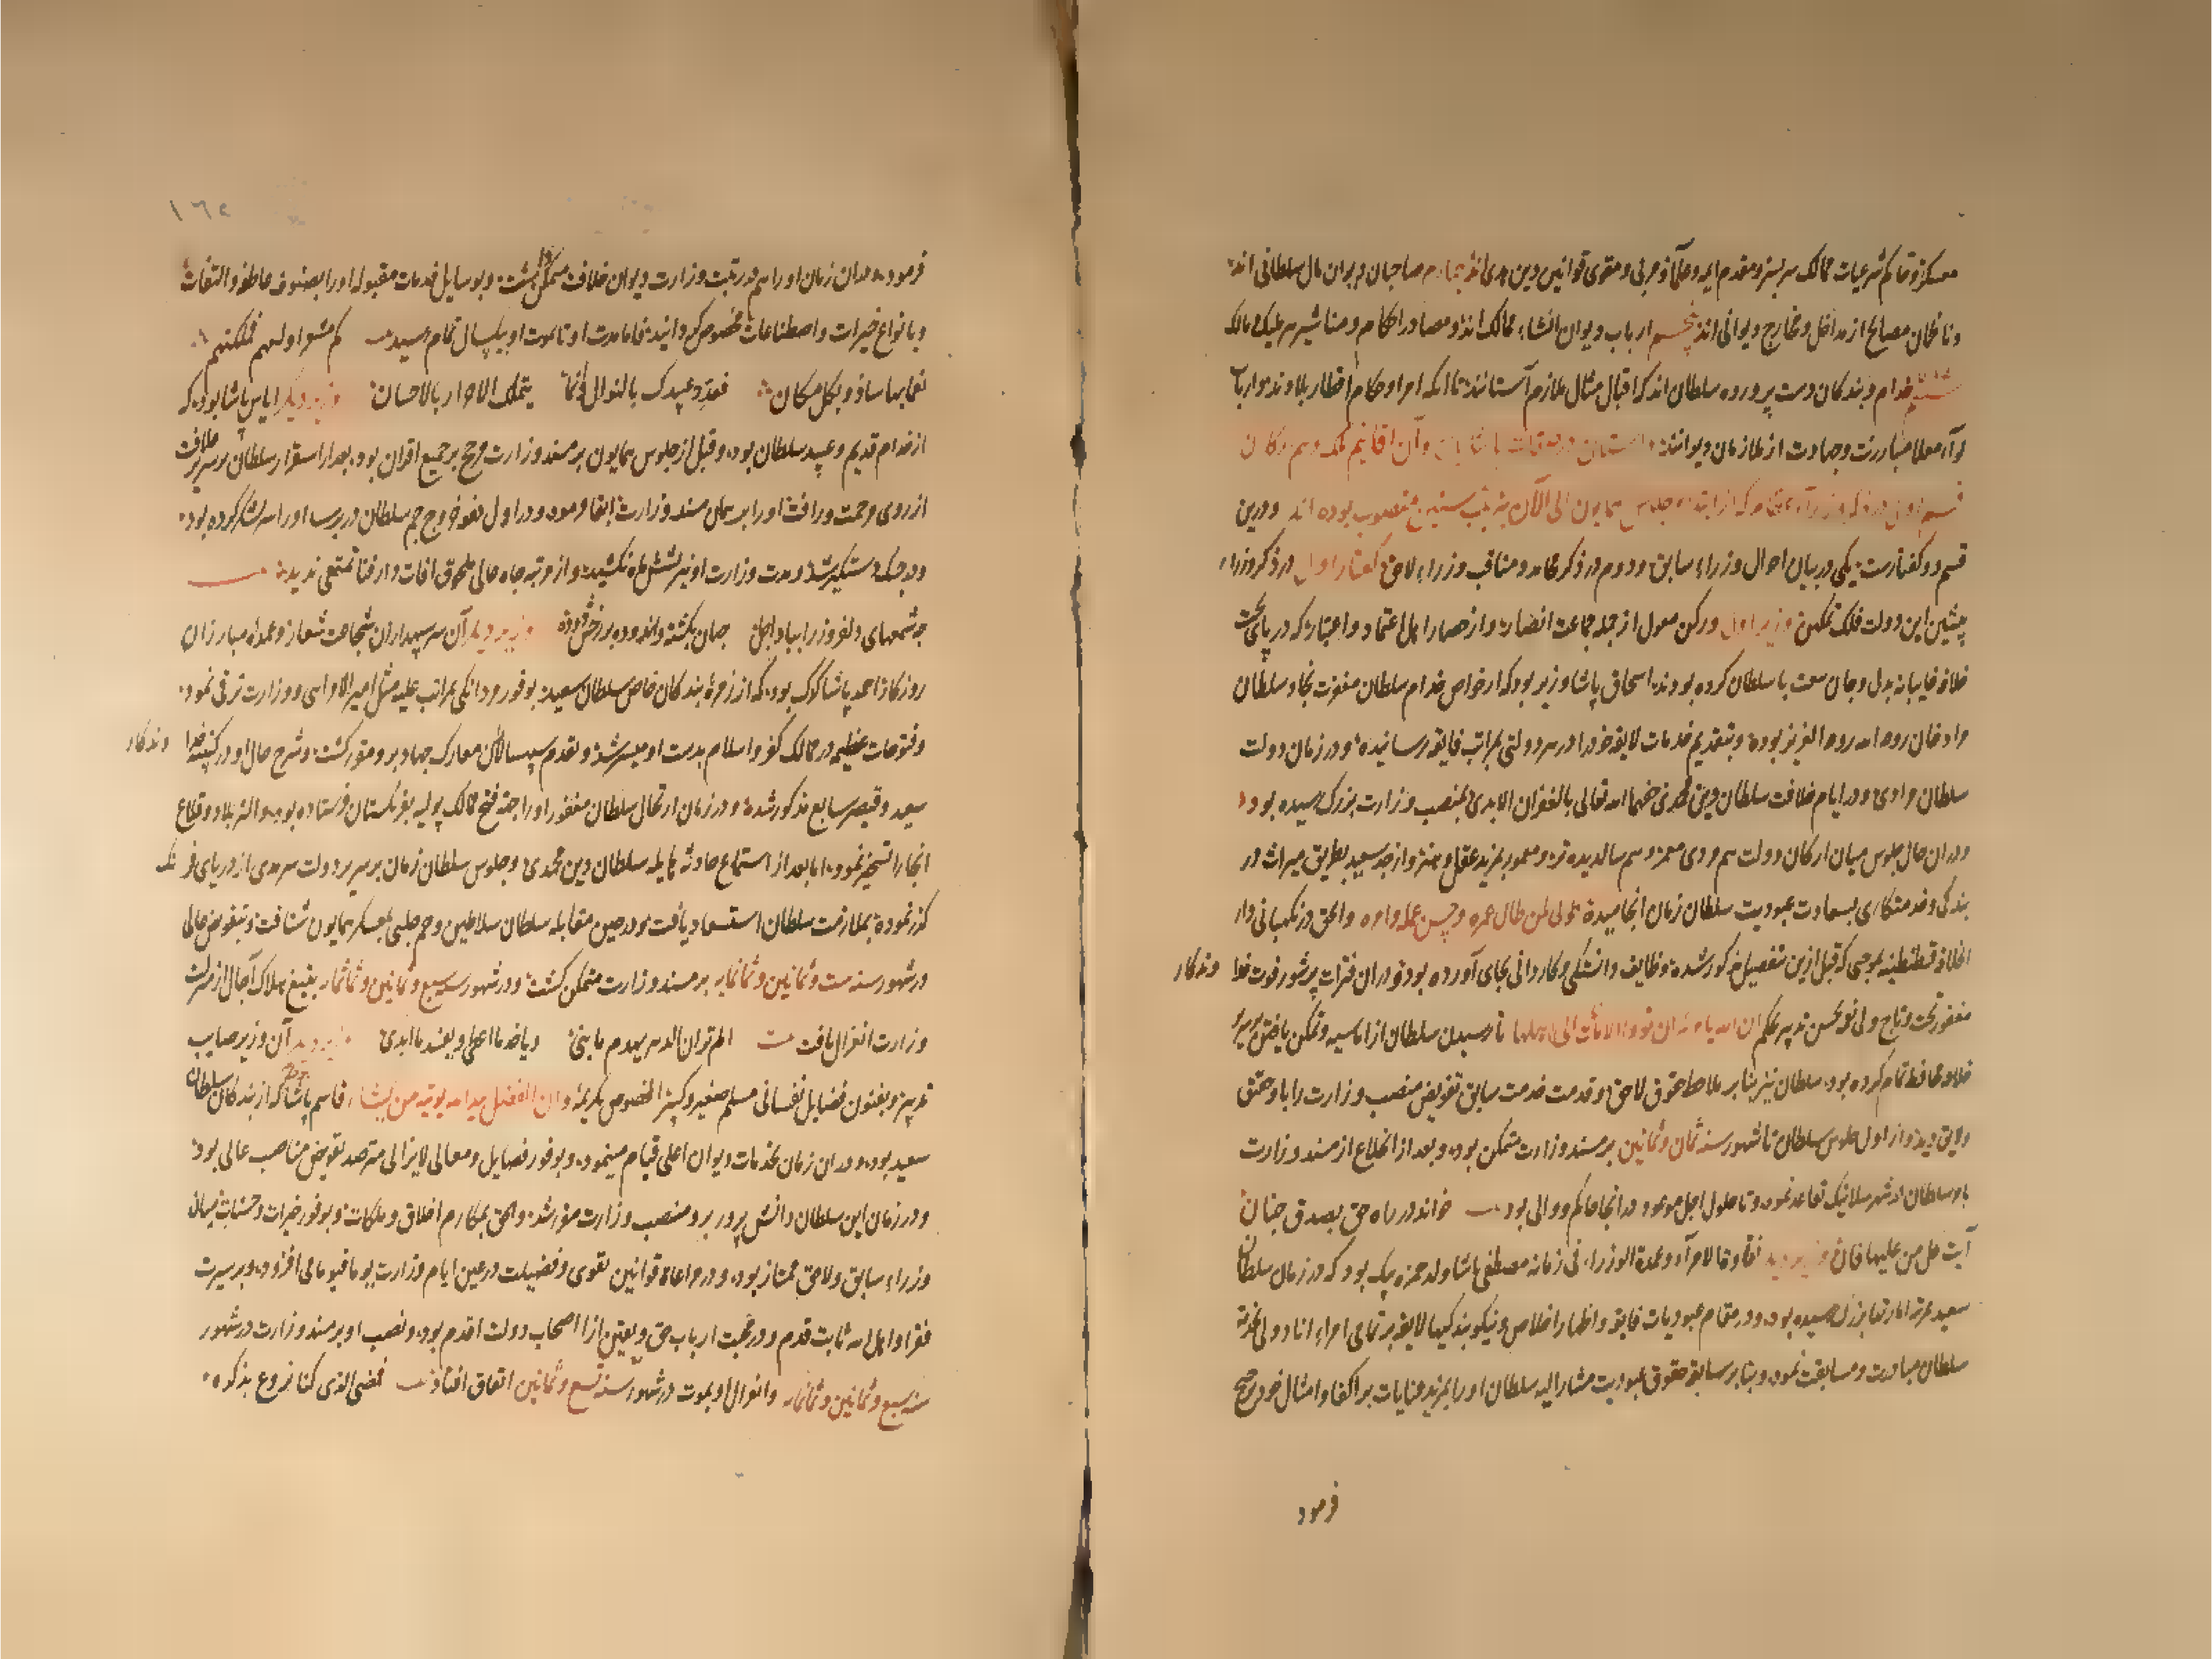 معسکرند و حاکم شرعیات ممالک سربسر و مقدم ایمه و علما و مربی و مقوی قوانین دین هدی‌اند چهارم صاحبان دیوان مال سلطانی‌اند
مصالح از مداخل و مخارج دیوانی‌اند پنجم ارباب دیوان انشاء ممالک‌اند و مصادر احکام و مناشیر
ششم خدام و بندکان دست پرورده سلطان‌اند که اقبال مثال ملازم آستانند تا آنکه امرا و حکام اقطار بلاوند و ارباب
از ملازمان دیوانند
قسم اول در ذکر وزراء عظام که از ابتداء جلوس همایون الی الآن بترتیب سنین منصوب بوده‌اند و درین
قسم دو کفتارست یکی در بیان احوال وزراء سابق و دوم در ذکر محامد و مناقب وزراء لاحق کفتار اول در ذکر وزراء
پیشین این دولت فلک تمکین وزیر اول و رکن معول از جمله جماعت انصار و از حصار اهل اعتماد و اعتبار که در پای تخت
خلافه غایبانه بدل و جان بیعت با سلطان کرده بودند اسحاق پاشا وزیر بود که از خواص خدام سلطان مغفرت نجاد سلطان
مراد خان روح الله روحه العزیز بوده و بتقدیم خدمات لایقه خود را در هر دولتی بمراتب فایقه رسانیده و در زمان دولت
سلطان مرادی و در ایام خلافت سلطان دین محمدی خصهما الله تعالی بالغفران الابدی بمنصب وزارت بزرک رسیده بود
و در آن حال جلوس میان ارکان دولت هم مردی معمر و هم سالدیده‌تر و معمور بمزید عقل و هنر و از جد سعید بطریق میراث در
بندکی و خدمتکاری بسعادت عبودیت سلطان زمان انجامیده طوبی لمن طال عمره و حسن عمله و امره والحق در نکهبانی دار
الخلافه قسطنطنیه بموجبی که قبل ازین بتفصیل مذکور شده وظایف دانستکی و کاردانی بجای آورده بود و در آن فترات پر شور فوت خداوندکار
مغفور تخت و تاج ولی نو بحسن تدبیر بحکم ان الله یامرکم ان تؤدوا الامانات الی اهلها تا رسیدن سلطان از اماسیه و تمکن یافتن بر سریر
خلافه محافظه تمام کرده بود سلطان نیز بنابر ملاحظه حقوق لاحق و قدمت خدمت سابق تفویض منصب وزارت را با و محقق
و لایق دید و از اول جلوس سلطان تا شهور سنه ثمان و ثمانین بر مسند وزارت متمکن بود و بعد از انخلاع از مسند وزارت
بامر سلطان در شهر سلانیک تقاعد نمود و تا حلول اجل موعود در آنجا حاکم و والی بود خواند در راه حق بصدق جنان
آیت کل من علیها فان وزیر دیکر نقاوة الامراء و عمدة الوزراء فی زمانه مصطفی پاشا ولد حمزه بیک بود که در زمان سلطان
سعید بمرتبه امارتها بزرک رسیده بود و در مقام عبودیات فایقه و اظهار اخلاص و نیکو بندکیها لایقه بر تمامی امراء اناطولی بخدمت
سلطان مبادرت و مسابقت نمود و بنابر سابقه حقوق عبودیت مشار الیه سلطان او را بمزید عنایات بر اکفا و امثال خود ترجیح
فرمود
١٦٥
فرمود و در آن زمان او را هم در رتبت وزارت دیوان خلافت متمکن داشت و بوسایل خدمات مقبوله او را بصنوف عاطفه و التفات
و بانواع خیرات و اصطناعات مخصوص کردانید فاما مدت او تا بموت او بیکسال تمام رسید
نعما بها سادو بکل مکان فعزز عبیدک بالنوال فانما یتملک الاحرار بالاحسان وزیر دیکر ایاس پاشا بود که
از خدام قدیم و عبید سلطان بود و قبل از جلوس همایون بر مسند وزارت مرجح بر جمیع اقران بود بعد از استقرار سلطان بر سریر خلافت
از روی مرحمت و رافت او را بر همان مسند وزارت ابقا فرمود و در اول دفعه خروج جم سلطان در برسا او را سر لشکر کرده بود
و در جنک دستکیر شد و مدت وزارت او نیز بشش ماه نکشید و از مرتبه جاه عالی بطروق آفات دار فنا تمتعی ندید
چه شمعهای دلفروز را بباد اجل جهان بکشته وزیر دیکر آن سر سپهداران شجاعت شعار و عمده مبارزان
روزکار احمد پاشا کدک بود که از زمره بندکان خاص سلطان سعید بوفور مردانکی بمراتب علیه مثل امیر الامرایی و وزارت ترقی نمود
و فتوحات عظیمه در ممالک کفر و اسلام بدست او میسر شد و تقدم سپهسالاران معارک جهاد برو مقرر کشت و شرح حال او در کتیبه خداوندکار
سعید و قیصر سابع مذکور شده و در زمان ارتحال سلطان مغفور او را جهة فتح ممالک پولیه بفرنکستان فرستاده بود و اکثر بلاد و قلاع
آنجا را تسخیر نمود اما بعد از استماع حادثه هایله سلطان دین محمدی و جلوس سلطان زمان بر سریر دولت سرمدی از دریای فرنک
کذر نموده بملازمت سلطان استسعاد یافت و در حین مقابله سلطان سلاطین و جم چلبی بمعسکر همایون شتافت و بتفویض عالی
در شهور سنه ست و ثمانین و ثمانمایه بر مسند وزارت متمکن کشت و در شهور سنه سبع و ثمانین و ثمانمایه بتیغ هلاک آجال از منزلت
وزارت انعزال یافت الم تر ان الدهر یهدم ما بنی و یاخذ ما اعطی و یفسد ما اسدی وزیر دیکر آن وزیر صایب
تدبیر و بفنون فضایل نفسانی مسلم صغیر و کبیر المخصوص بکریمه و ان الفضل بید الله یؤتیه من یشاء قاسم پاشا که از بندکان سلطان
سعید بود و در آن زمان بخدمات دیوان اعلی قیام مینمود و بوفور فضایل و معالی لایزالی مترصد تفویض مناصب عالی بود
و در زمان این سلطان دانش پرور برو منصب وزارت مقرر شد والحق بمکارم اخلاق و ملکات و بوفور خیرات و حسنات میان
وزراء سابق و لاحق ممتاز بود و در مراعاة قوانین تقوی و فضیلت در عین ایام وزارت یوما فیوما می‌افزود و بر سیرت
فقرا و اهل الله ثابت قدم و در محبت ارباب حق و یقین از اصحاب دولت اقدم بود و نصب او بر مسند وزارت در شهور
سنه سبع و ثمانین و ثمانمایه و انعزال او بموت در شهور سنه تسع و ثمانین اتفاق افتاد مضی الذی کنا نروع بذکره